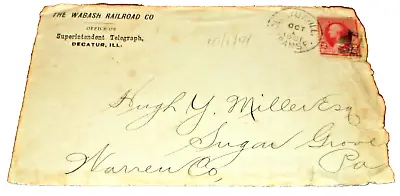 THE WABASH RAILROAD CO
OFFICE OF
Superintendent Telegraph,
DECATUR, ILL.
ILL.
OCT
Hugh Y. Miller Esq
Sugar Grove
Warren Co,
Pa